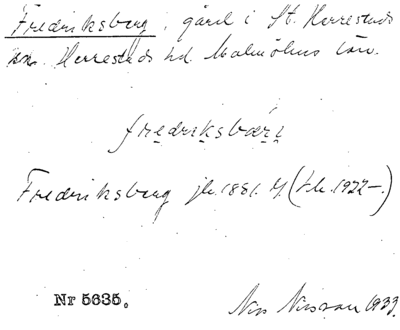 Fredriksberg, gård i St. Herrestads
sn. Herrestads hd. Malmöhus län.
fredriksbäri
Fredriksberg jb. 1881. 4 (Hb. 1922–.)
Nr 5635.
Nils Nilsson 1933.